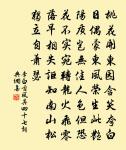 桃花開東園含笑夸白
日偶蒙東風榮生此艷
陽質豈無佳人色但恐
花不實宛轉龍火飛零
落早相失詎知南山松
獨立自蕭瑟
李白古風其四十七